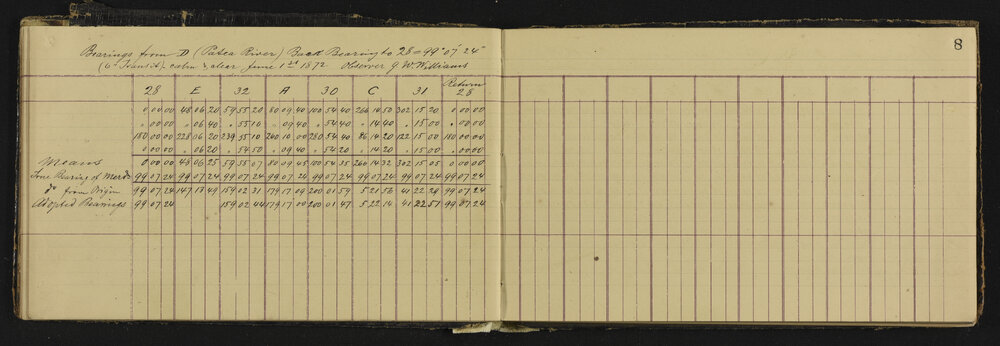 8
Bearings from D (Patea River) Back Bearing to 28 = 99° 07' 24"
(6" Transit). calm & clear June 1st 1872 Observer G W. Williams
28 E 32 A 30 C 31 Return 28
0 00 00 48 06 20 59 55 20 80 09 40 100 54 40 266 14 50 302 15 20 0 00 00
" 00 00 " 06 40 " 55 10 " 09 40 " 54 40 " 14 40 " 15 00 " 00 00
180 00 00 228 06 20 239 55 10 260 10 00 280 54 40 86 14 20 122 15 00 180 00 00
" 00 00 " 06 20 " 54 50 " 09 40 " 54 20 " 14 20 " 15 00 " 00 00
Means 0 00 00 48 06 25 59 55 07 80 09 45 100 54 35 266 14 32 302 15 05 0 00 00
99 07 24 99 07 24 99 07 24 99 07 24 99 07 24 99 07 24 99 07 24 99 07 24
Do from Origin 99 07 24 147 13 49 159 02 31 179 17 09 200 01 59 5 21 56 41 22 29 99 07 24
Adopted Bearings 99 07 24 159 02 44 179 17 00 200 01 47 5 22 14 41 22 51 99 07 24